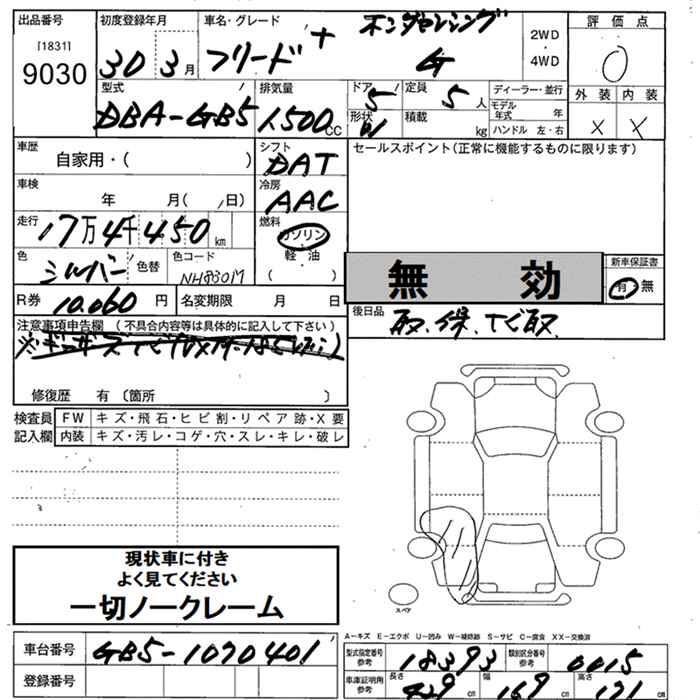 出品番号 [1831] 9030
初度登録年月 30 3月
車名・グレード フリード + ホンダセンシング G
2WD・4WD
評価点 0
外装 X 内装 X
型式 DBA-GB5
排気量 1,500cc
ドア 5
形状 W
定員 5人
積載 kg
ディーラー・並行
モデル年式 年
ハンドル 左・右
車歴 自家用・( )
シフト DAT
セールスポイント(正常に機能するものに限ります)
車検 年 月( /日)
冷房 AAC
走行 17万4千450km
燃料 ガソリン 軽油 ( )
色 シルバー 色替
色コード NH830M
無効
新車保証書 有・無
R券 10,060円
名変期限 月 日
後日品 取、保、ナビ取
注意事項申告欄 (不具合内容等は具体的に記入して下さい)
修復歴 有 〔箇所 〕
検査員記入欄
FW キズ・飛石・ヒビ割・リペア跡・X要
内装 キズ・汚レ・コゲ・穴・スレ・キレ・破レ
現状車に付き
よく見てください
一切ノークレーム
スペア
A-キズ E-エクボ U-凹み W-補修跡 S-サビ C-腐食 XX-交換済
車台番号 GB5-1070401
型式指定番号 参考 18393
類別区分番号 参考 0015
登録番号
車庫証明用 参考 長さ 429cm 幅 169cm 高さ 171cm